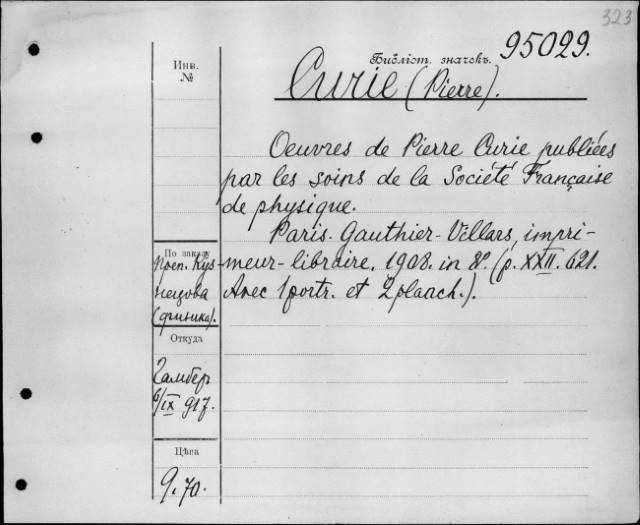 323
Библіот. значекъ. 95029.
Инв.
№
Curie (Pierre).
Oeuvres de Pierre Curie publiées
par les soins de la Société Française
de physique.
Paris. Gauthier-Villars, impri-
meur-libraire, 1908. in 8º. (p. XXII. 621.
Avec 1 portr. et 2 planch.).
По заказу
проп. Куз-
нецова
(физика).
Откуда
Гамбер
6/IX 917.
Цѣна
9.70.